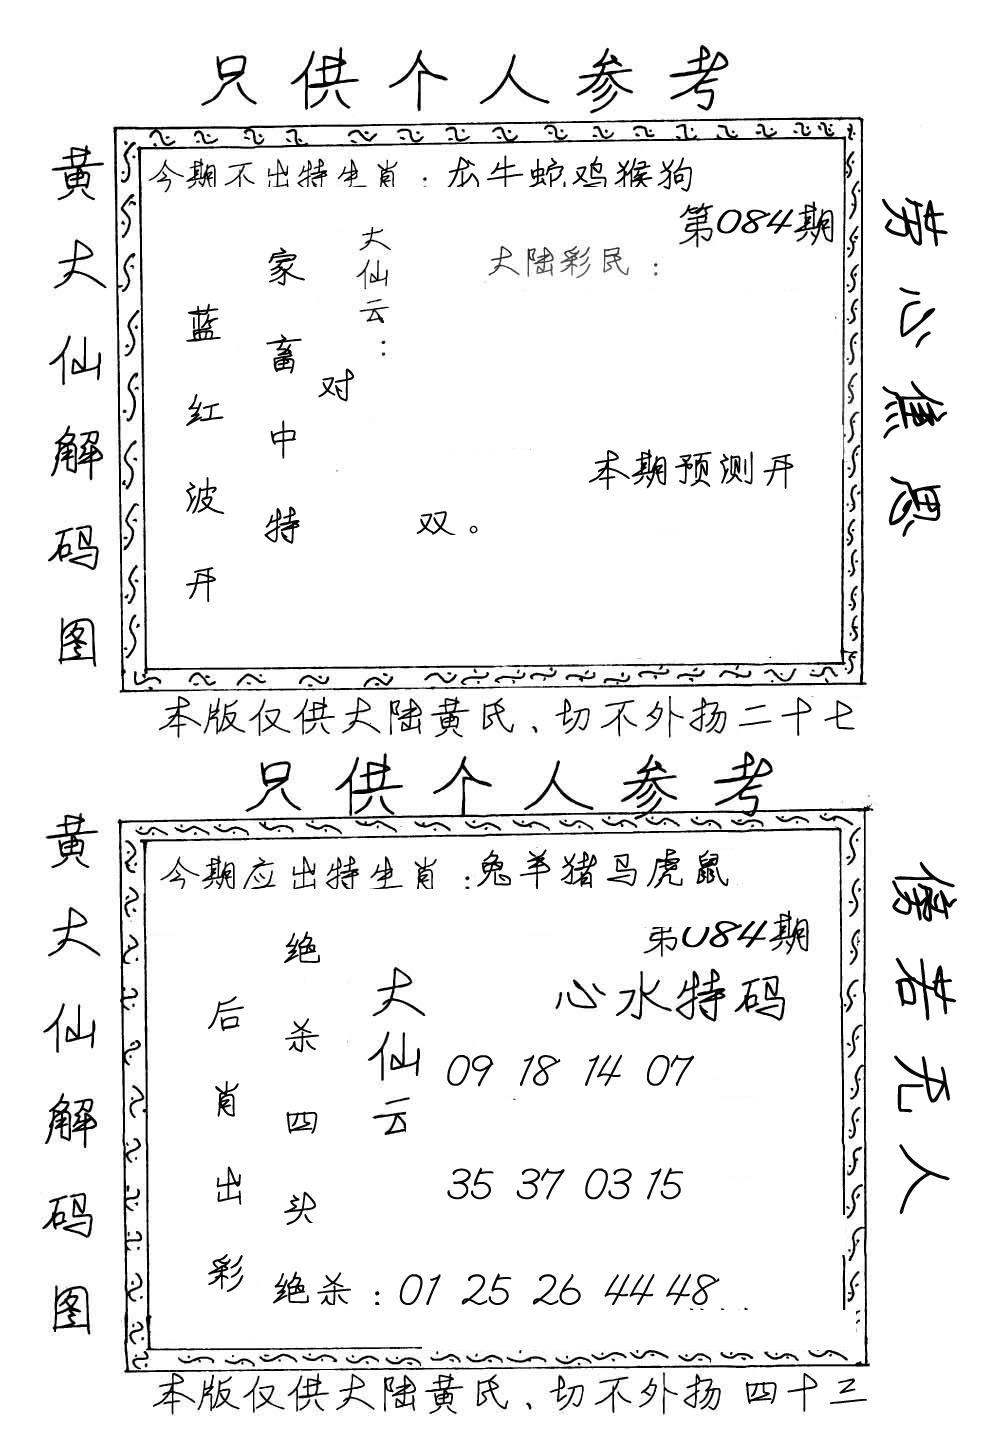 只供个人参考
黄大仙解码图
今期不出特生肖：龙牛蛇鸡猴狗
第084期
大陆彩民：
大仙云：
家畜中特
蓝红波开
对
双。
本期预测开
劳心焦思
本版仅供大陆黄氏、切不外扬二十七
只供个人参考
黄大仙解码图
今期应出特生肖：兔羊猪马虎鼠
第084期
心水特码
大仙云
绝杀四头
后肖出彩
09 18 14 07
35 37 03 15
绝杀：01 25 26 44 48
傍若无人
本版仅供大陆黄氏、切不外扬 四十三